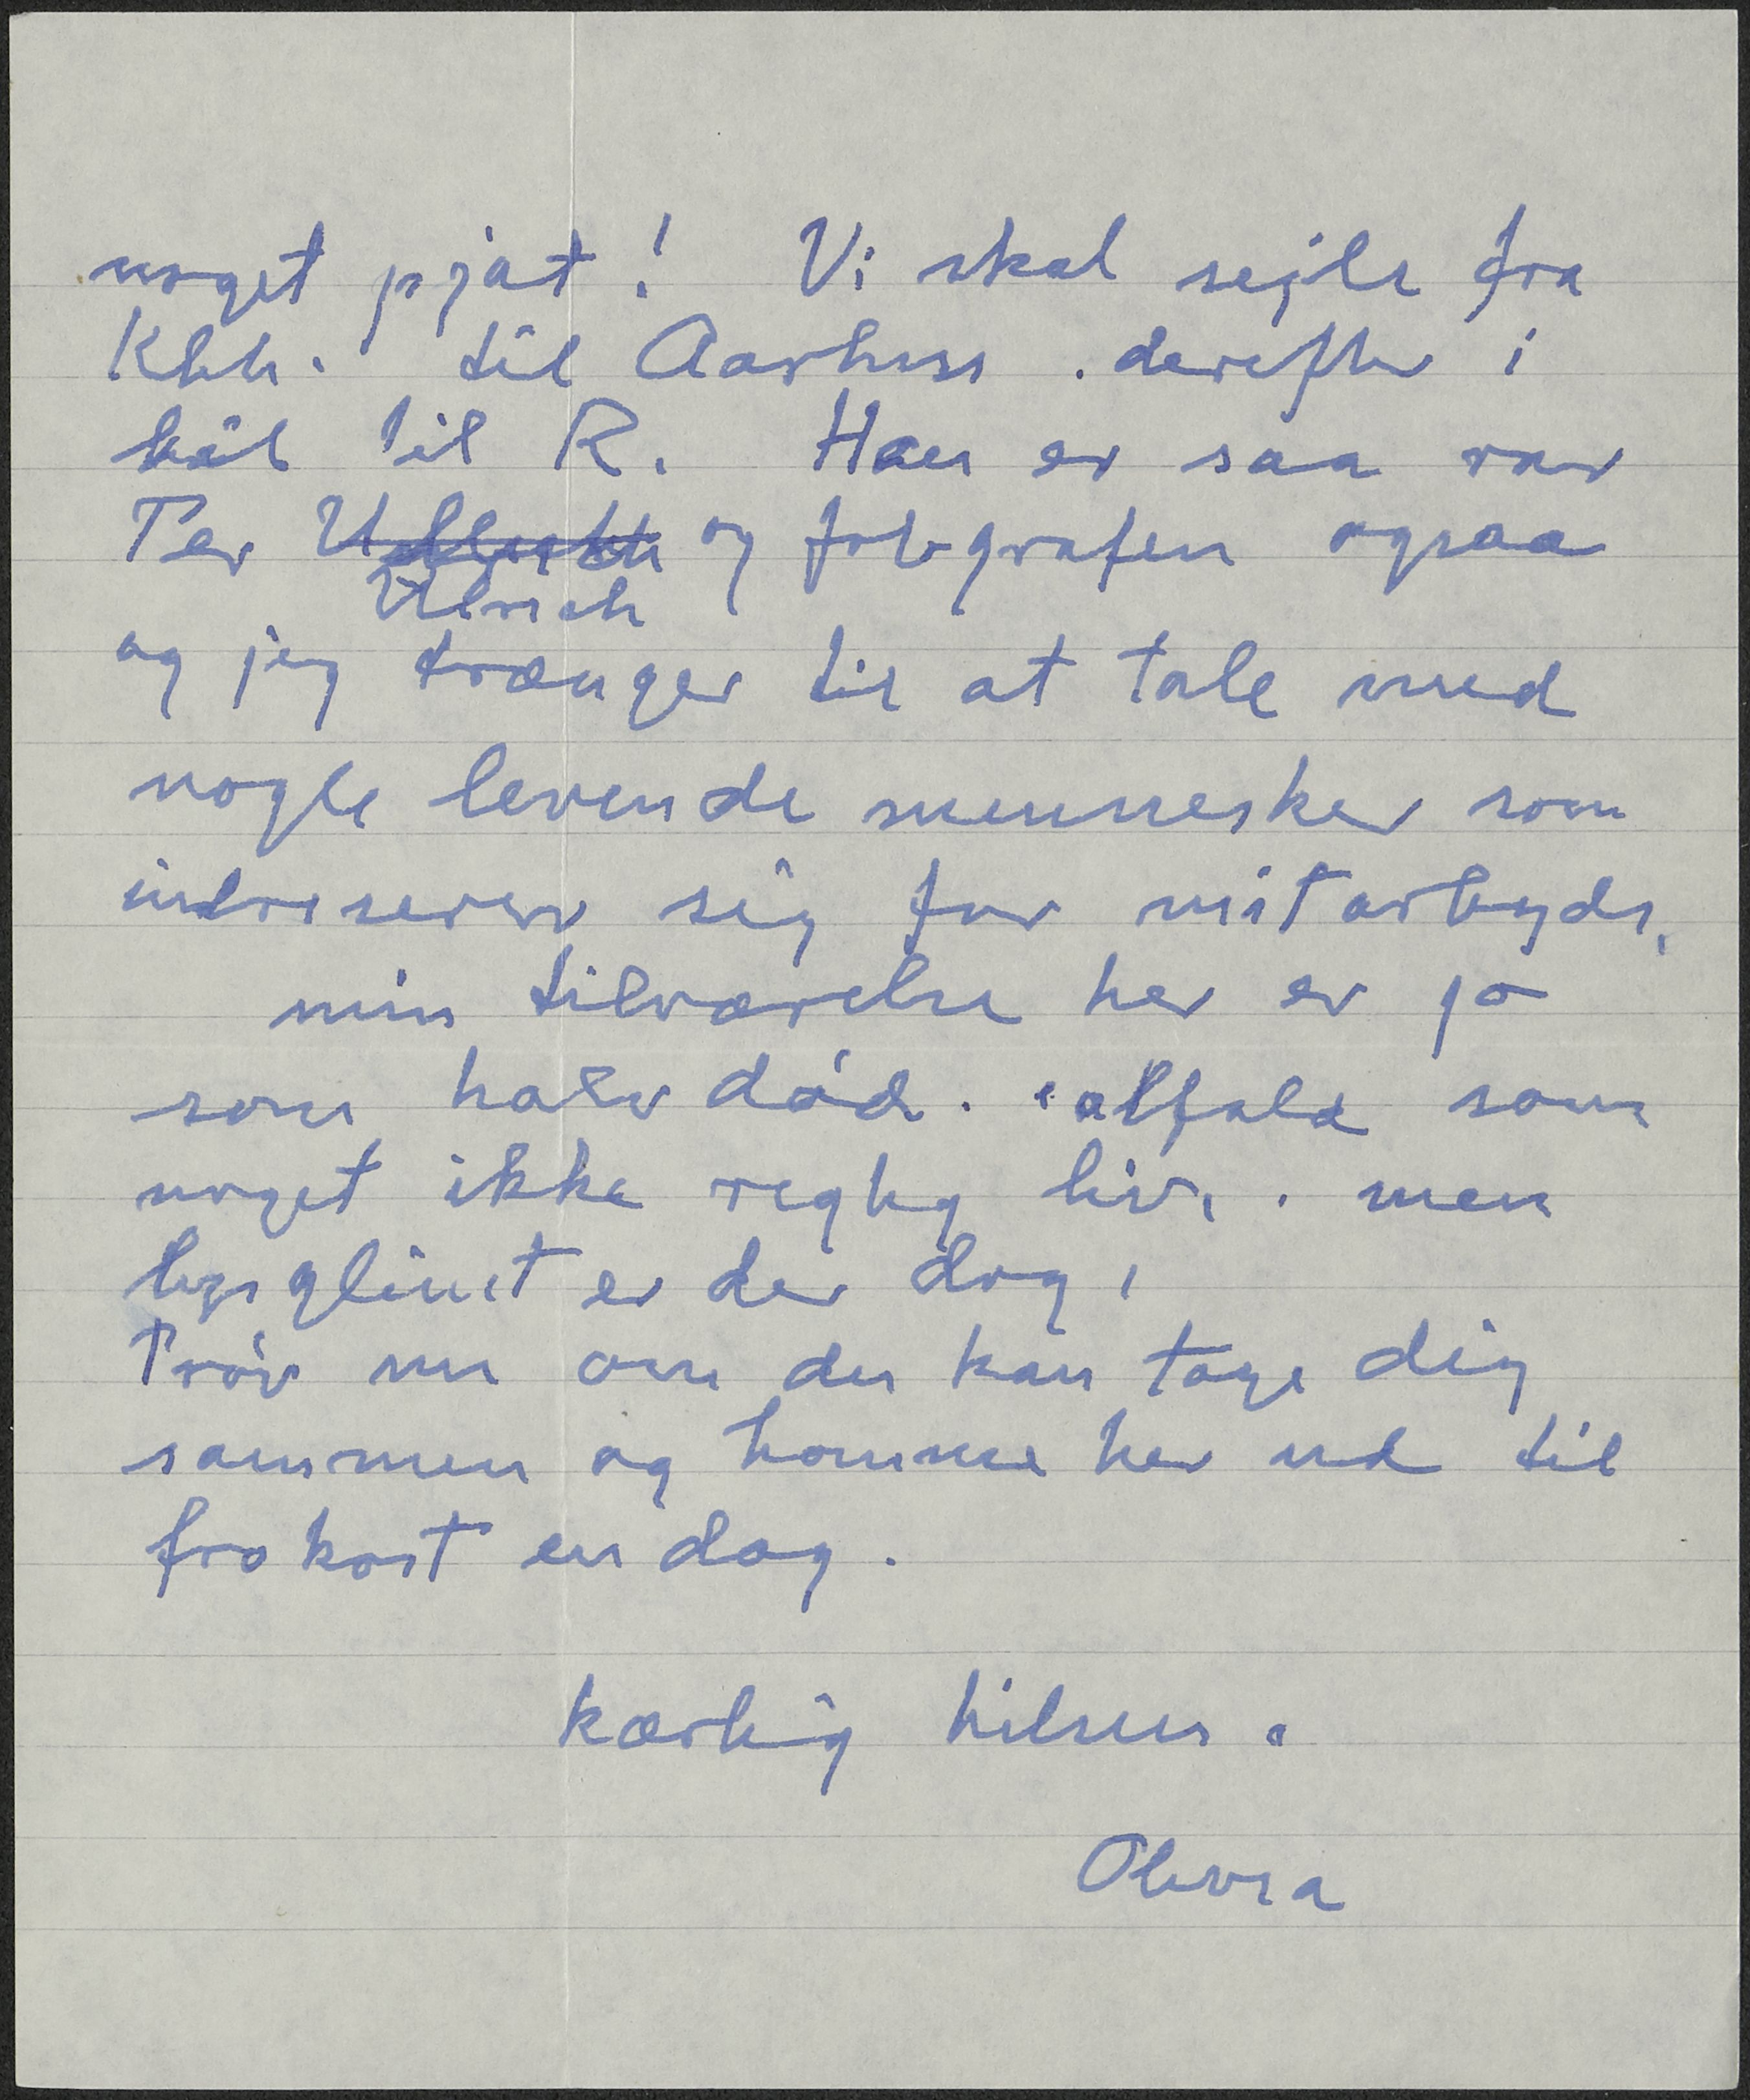 noget pjat! Vi skal sejle fra
Kbh. til Aarhus. derefter i
bil til R. Han er saa rar
Per og fotografen ogsaa
Ulrich
og jeg trænger til at tale med
nogle levende mennesker som
intreserer sig for mit arbejde.
min tilværelse her er jo
som halv død. ialfald som
noget ikke rigtig liv. . men
lysglimt er der dog.
Prøv nu om du kan tage dig
sammen og komme her ud til
frokost en dag.
kærlig hilsen.
Olivia